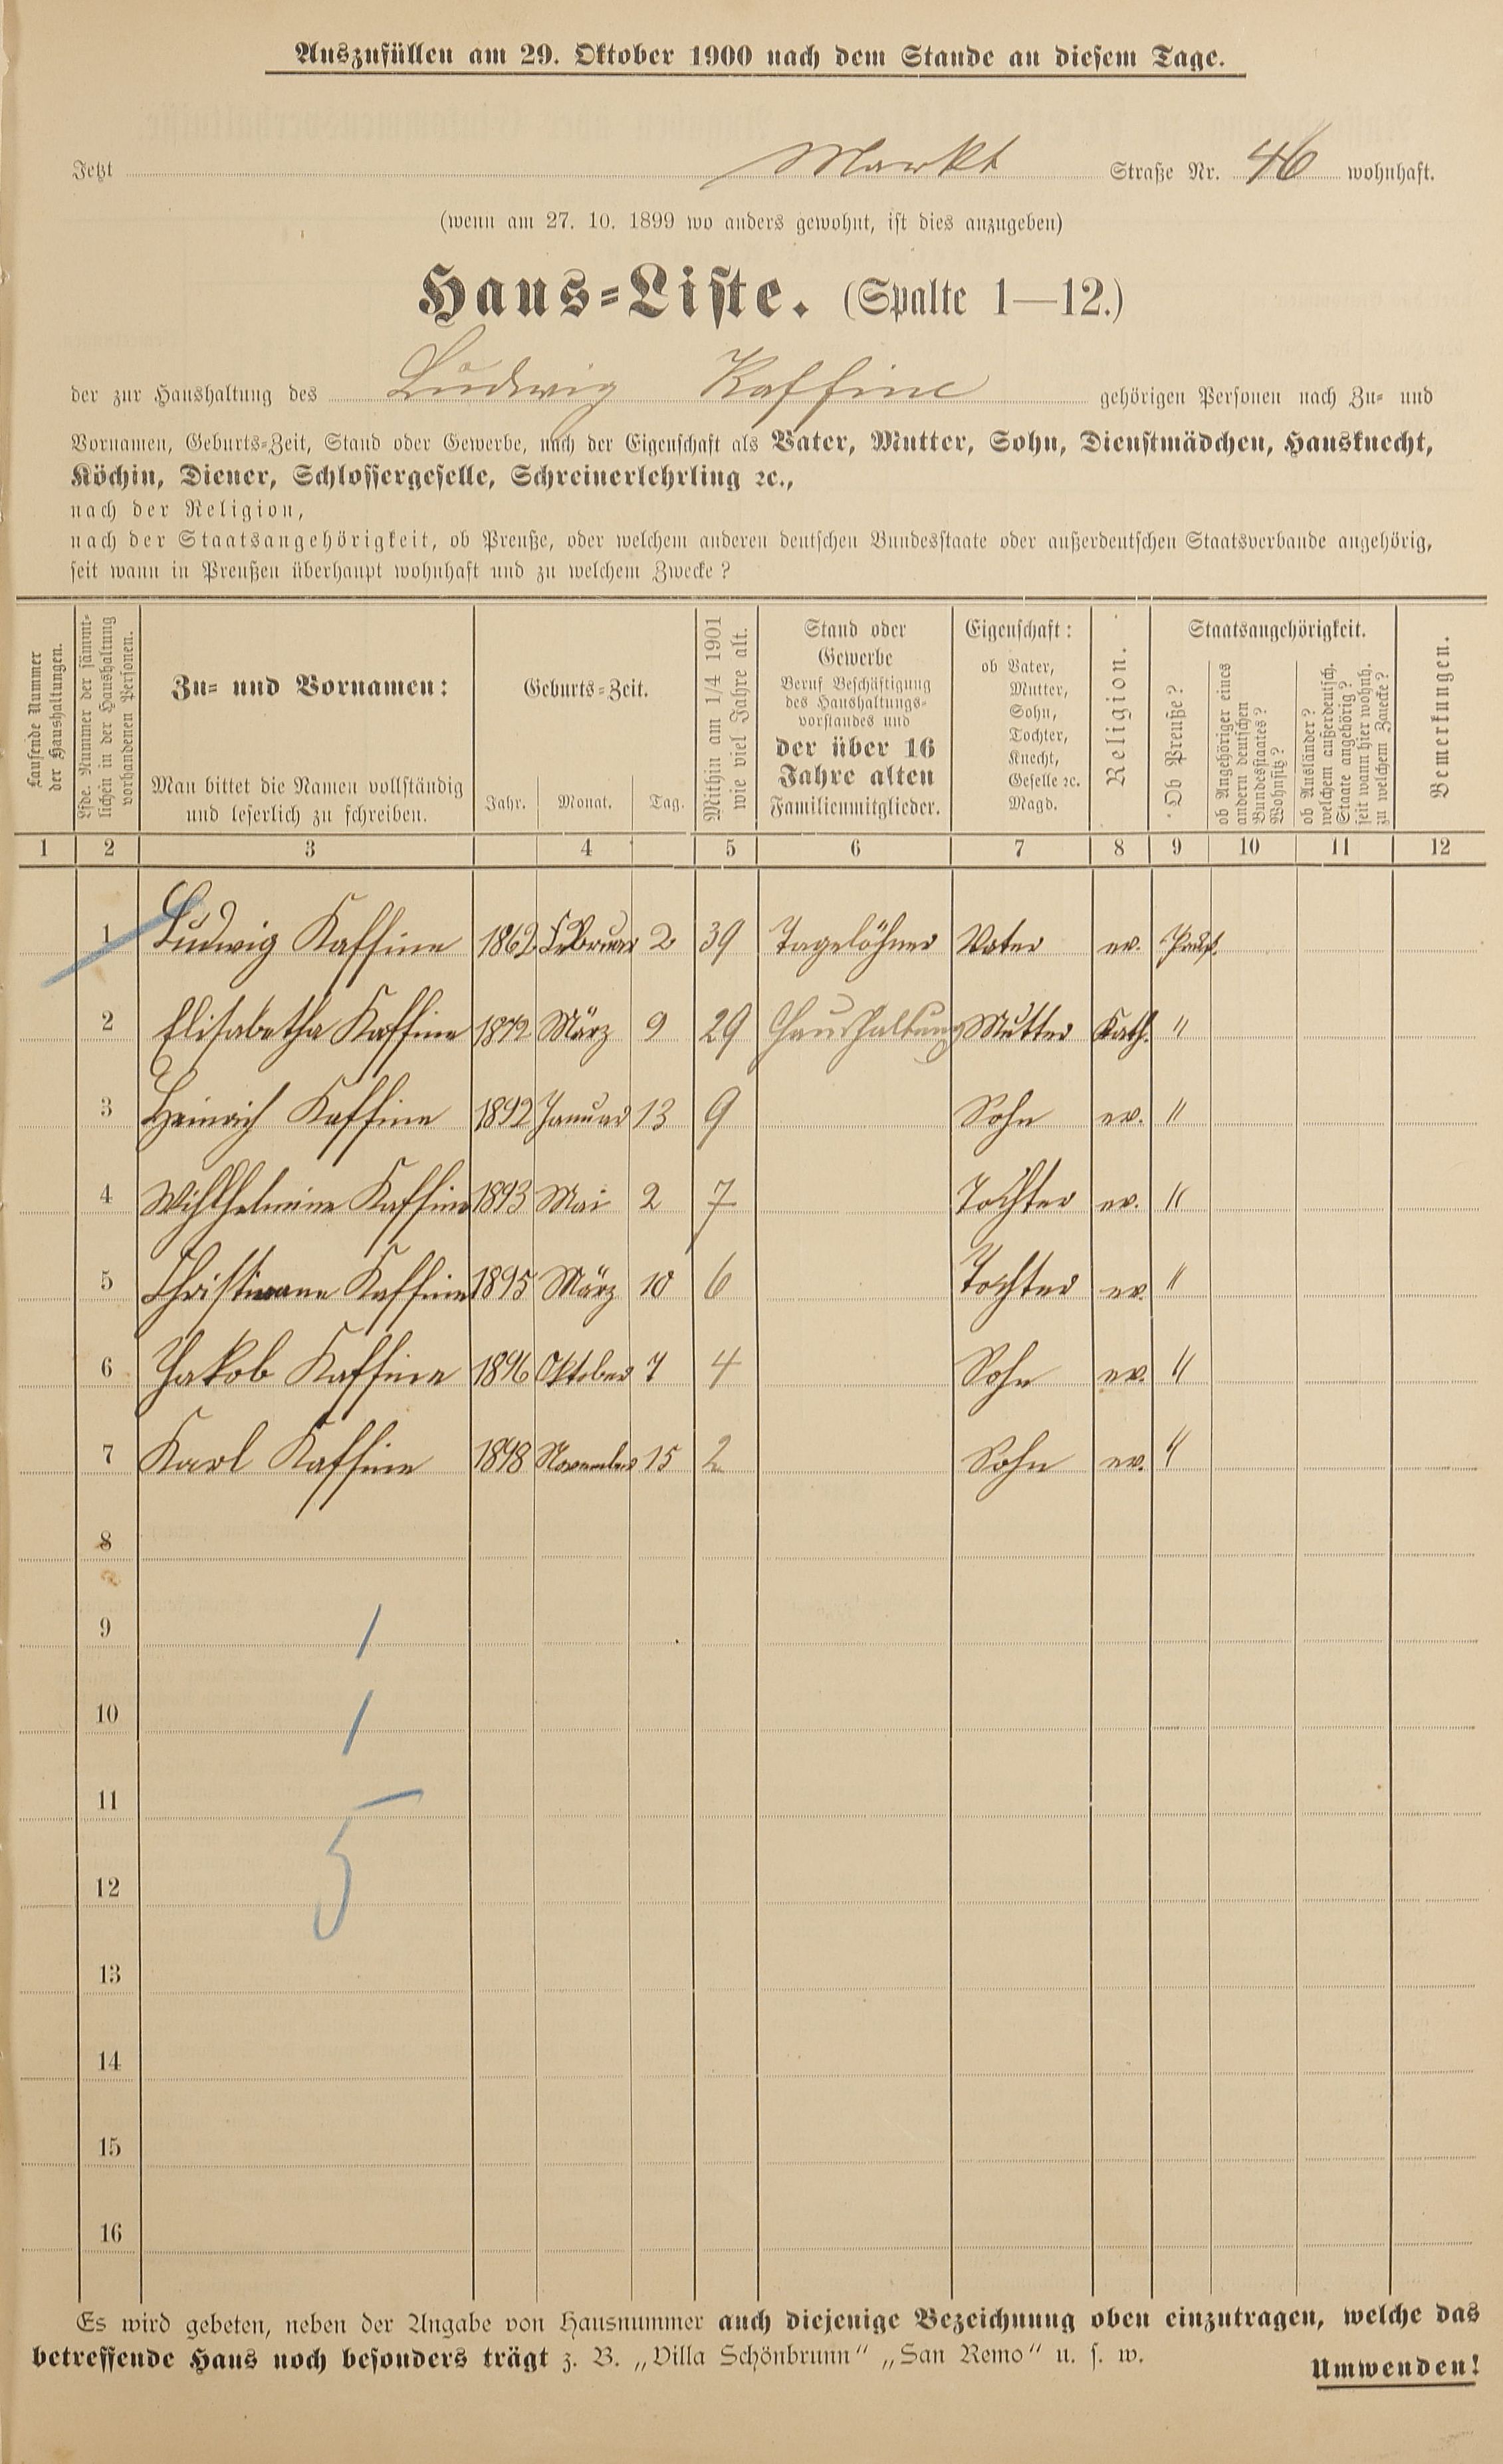 Auszufüllen am 29. Oktober 1900 nach dem Stande an diesem Tage.
Jetzt Markt Straße Nr. 46 wohnhaft.
(wenn am 27. 10. 1899 wo anders gewohnt, ist dies anzugeben)
Haus-Liste. (Spalte 1—12.)
der zur Haushaltung des Ludwig Kaffine gehörigen Personen nach Zu- und
Vornamen, Geburts-Zeit, Stand oder Gewerbe, nach der Eigenschaft als Vater, Mutter, Sohn, Dienstmädchen, Hausknecht,
Köchin, Diener, Schlossergeselle, Schreinerlehrling ꝛc.,
nach der Religion,
nach der Staatsangehörigkeit, ob Preuße, oder welchem anderen deutschen Bundesstaate oder außerdeutschen Staatsverbande angehörig,
seit wann in Preußen überhaupt wohnhaft und zu welchem Zwecke?
Laufende Nummer
der Haushaltungen.
Lfde. Nummer der sämmt-
lichen in der Haushaltung
vorhandenen Personen.
Zu- und Vornamen:
Man bittet die Namen vollständig
und leserlich zu schreiben.
Geburts-Zeit.
Jahr. Monat. Tag.
Mithin am 1/4 1901
wie viel Jahre alt.
Stand oder
Gewerbe
Beruf Beschäftigung
des Haushaltungs-
vorstandes und
der über 16
Jahre alten
Familienmitglieder.
Eigenschaft:
ob Vater,
Mutter,
Sohn,
Tochter,
Knecht,
Geselle ꝛc.
Magd.
Religion.
Staatsangehörigkeit.
Ob Preuße?
ob Angehöriger eines
andern deutschen
Bundesstaates?
Wohnsitz?
ob Ausländer?
welchem außerdeutsch.
Staate angehörig?
seit wann hier wohnh.
zu welchem Zwecke?
Bemerkungen.
1 2 3 4 5 6 7 8 9 10 11 12
1 Ludwig Kaffine 1862 Februar 2 39 Tagelöhner Vater ev. Preuß.
2 Elisabetha Kaffine 1872 März 9 29 Haushaltung Mutter Kath. "
3 Heinrich Kaffine 1892 Januar 13 9 Sohn ev. "
4 Wihlhelmine Kaffine 1893 Mai 2 7 Tochter ev. "
5 Christiane Kaffine 1895 März 10 6 Tochter ev. "
6 Jakob Kaffine 1896 Oktober 7 4 Sohn ev. "
7 Karl Kaffine 1898 November 15 2 Sohn ev. "
8
9 1
10 1
11
12 5
13
14
15
16
Es wird gebeten, neben der Angabe von Hausnummer auch diejenige Bezeichnung oben einzutragen, welche das
betreffende Haus noch besonders trägt z. B. „Villa Schönbrunn" „San Remo" u. s. w.
Umwenden!